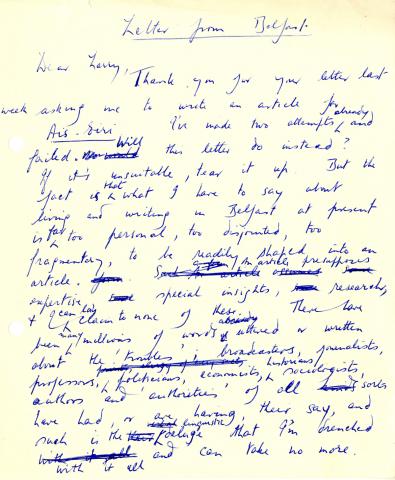 Letter from Belfast.
Dear Larry,
Thank you for your letter last
week asking me to write an article for
Ais-Eiri I've made two attempts already and
failed. Will this letter do instead?
If it's unsuitable, tear it up. But the
fact is that what I have to say about
living and writing in Belfast at present
is far too personal, too disjointed, too
fragmentary, to be readily shaped into an
article. an article presupposes
expertise special insights, research,
& I can lay claim to none of these. There have
been many millions of words already uttered or written
about the 'troubles'; broadcasters, journalists,
professors, politicians, economists, historians, sociologists,
authors and 'authorities' of all sorts
have had, or are having, their say, and
such is the linguistic deluge that I'm drenched
with it all and can take no more.